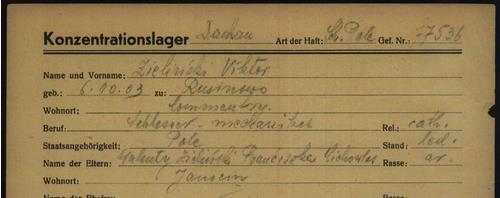 Konzentrationslager Dachau Art der Haft: Sch. Pole Gef. Nr.: 77536
Name und Vorname: Zieliński Viktor
geb.: 6.10.03 zu: Rusinowo
Wohnort: Commentry.
Beruf: Schlosser - mechaniker Rel.: cath.
Staatsangehörigkeit: Pole Stand: led.
Name der Eltern: Zieliński Franciszka Rasse: ar.
Wohnort:
Name der Ehefrau